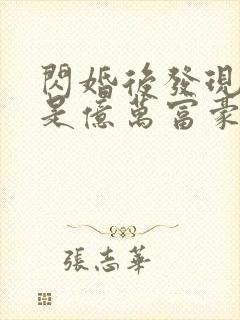 閃婚後發現
是億萬富豪
張志華